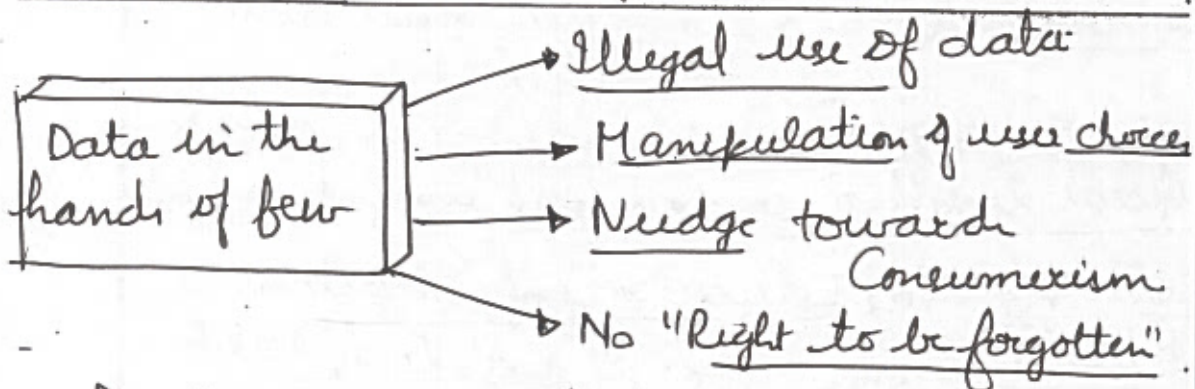 Data in the
hands of few
Illegal use of data
Manipulation of user choices
Nudge towards
Consumerism
No "Right to be forgotten".